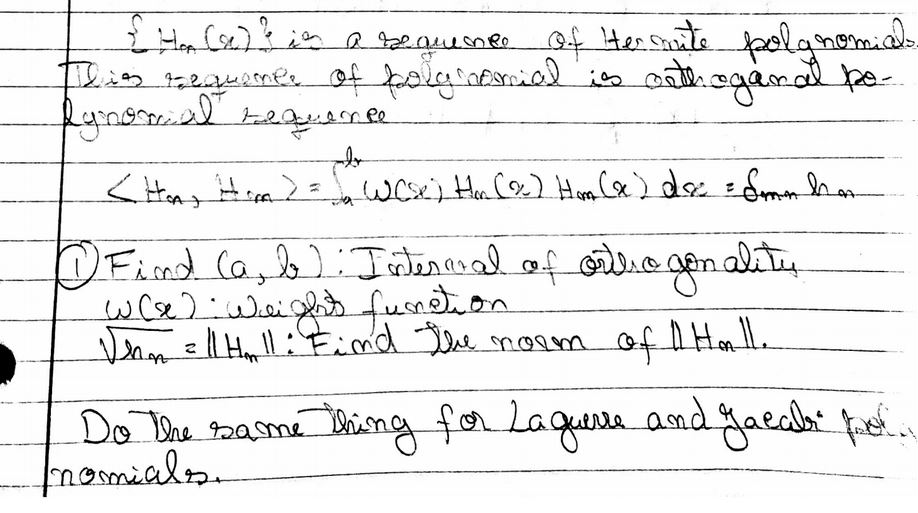 {Hn(x)} is a sequence of Hermite polynomials.
This sequence of polynomial is orthoganal po-
lynomial sequence
<Hn, Hm> = ∫_a^b W(x) Hn(x) Hm(x) dx = δmn hn
① Find (a, b) : Interval of orthogonality
W(x) : Weight function
√hn = ||Hn|| : Find the norm of ||Hn||.
Do the same thing for Laguerre and Jacobi
nomials.